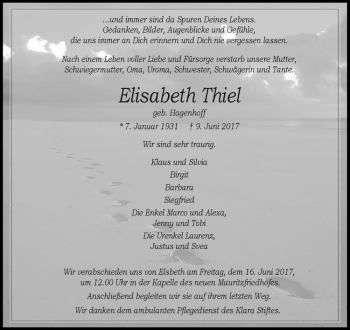 ...und immer sind da Spuren Deines Lebens.
Gedanken, Bilder, Augenblicke und Gefühle,
die uns immer an Dich erinnern und Dich nie vergessen lassen.
Nach einem Leben voller Liebe und Fürsorge verstarb unsere Mutter,
Schwiegermutter, Oma, Uroma, Schwester, Schwägerin und Tante.
Elisabeth Thiel
geb. Hagenhoff
* 7. Januar 1931 † 9. Juni 2017
Wir sind sehr traurig.
Klaus und Silvia
Birgit
Barbara
Siegfried
Die Enkel Marco und Alexa,
Jenny und Tobi
Die Urenkel Laurenz,
Justus und Svea
Wir verabschieden uns von Elsbeth am Freitag, dem 16. Juni 2017,
um 12.00 Uhr in der Kapelle des neuen Mauritzfriedhofes.
Anschließend begleiten wir sie auf ihrem letzten Weg.
Wir danken dem ambulanten Pflegedienst des Klara Stiftes.